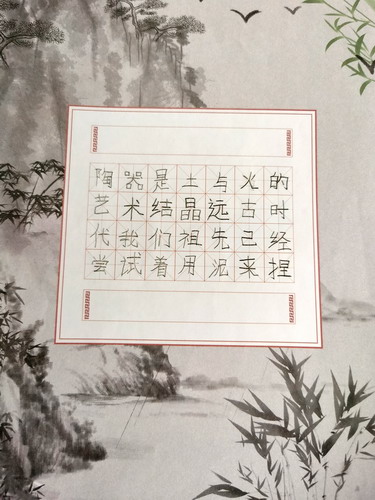 陶器是土与火的
艺术结晶远古时
代我们祖先己经
尝试着用泥来捏